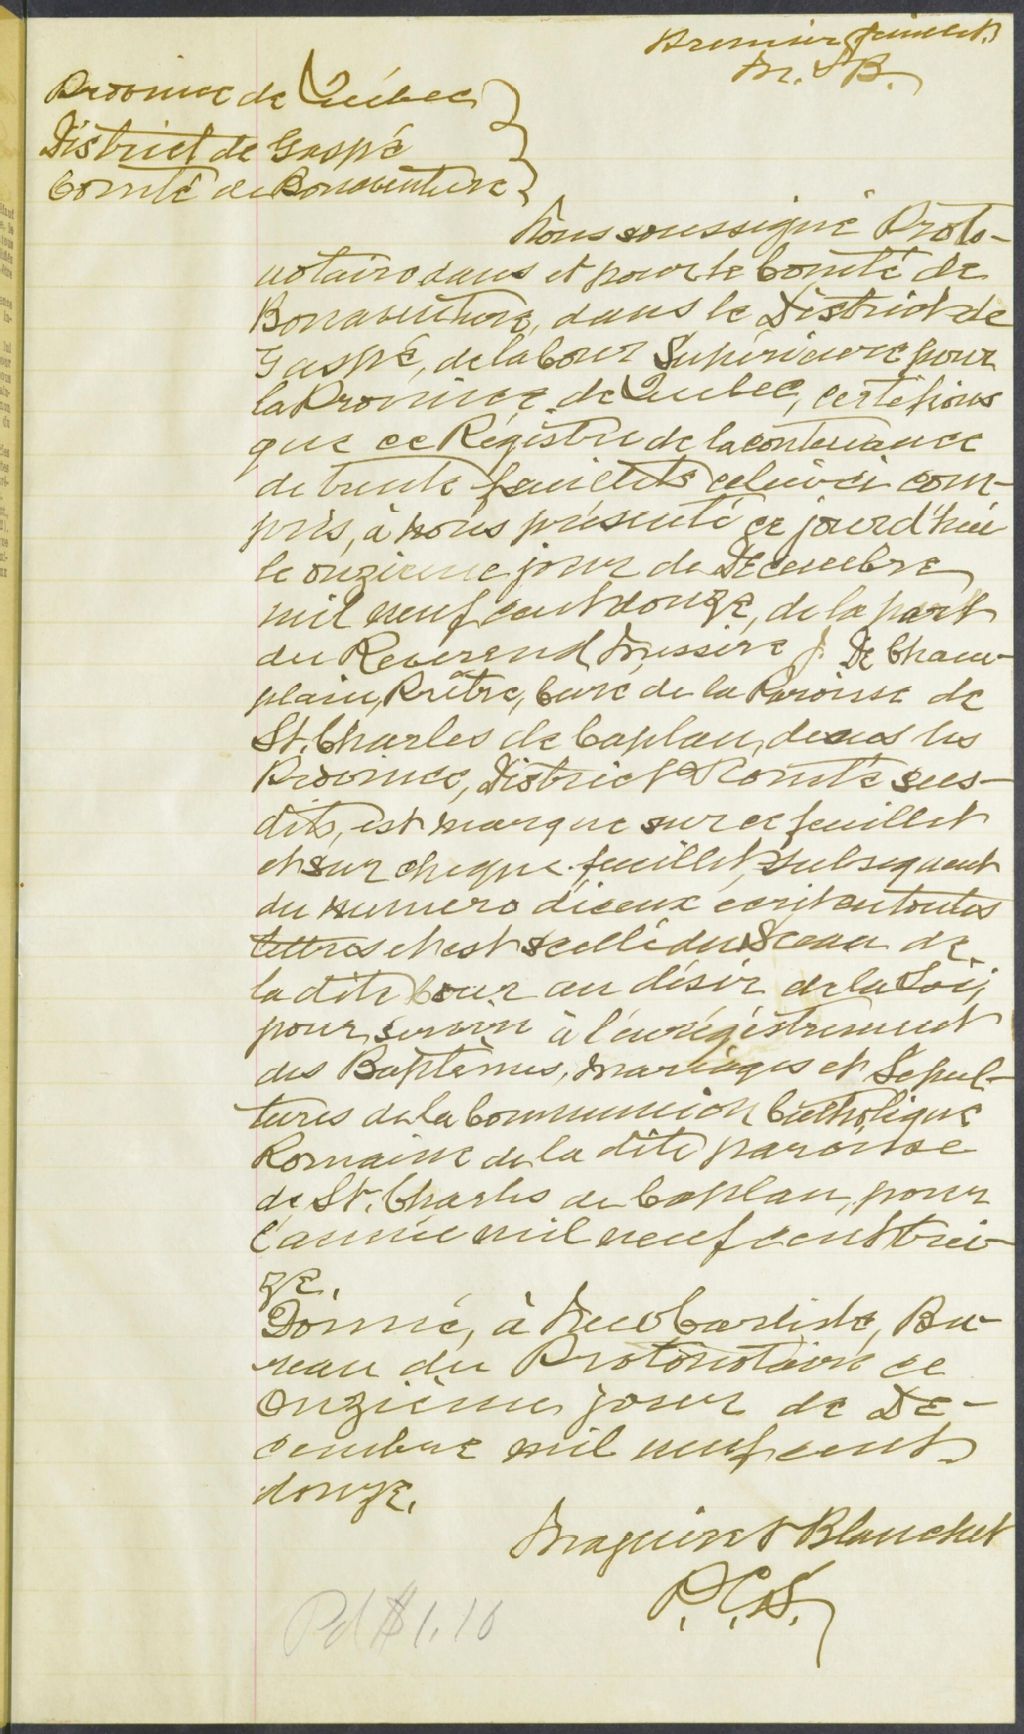 Premier feuillet.
M. & B.
Province de Québec
District de Gaspé
Comté de Bonaventure
Nous soussigné Proto-
notaire dans et pour le Comté de
Bonaventure, dans le District de
Gaspé, de la Cour Supérieure pour
la Province de Quebec, certifions
que ce Régistre de la contenance
de trente feuillets celui-ci com-
pris, à nous présenté ce jourd'hui
le onzieme jour de Decembre
mil neuf cent douze, de la part
du Reverend Messire J. De Cham-
plain, Prêtre, Curé de la Paroisse de
St. Charles de Caplan, dans les
Province, District & Comté sus-
dits, est marque sur ce feuillet
et sur cheque feuillet subsequent
du numero d'iceux écrit en toutes
lettres et est scellé du Sceau de
la dite Cour au désir de la Loi,
pour servir à l'enrégistrement
des Baptêmes, Mariages et Sepul-
tures de la Communion Catholique
Romaine de la dite paroisse
de St. Charles de Caplan, pour
l'année mil neuf cent trei-
ze.
Donné, à New Carlisle, Bu-
reau du Protonotaire ce
Onzième jour de De-
cembre mil neuf cent
douze.
Maguire & Blanchet
P.C.S.
Pd $1.10